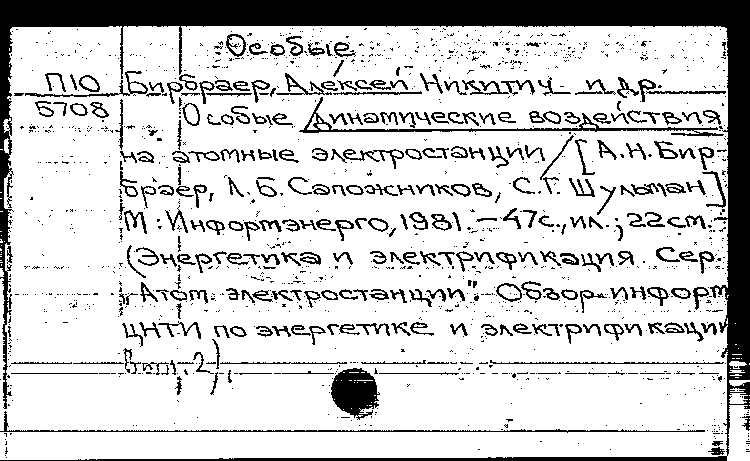 Особые
П10 Бирбраер, Алексей Никитич и др.
5708 Особые динамические воздействия
на атомные электростанции / [А.Н. Бир-
браер, Л.Б. Сапожников, С.Г. Шульман]
М: Информэнерго, 1981. – 47с., ил.; 22см. –
(Энергетика и электрификация. Сер.
"Атом. электростанции". Обзор. информ
ЦНТИ по энергетике и электрификации
Вып. 2).